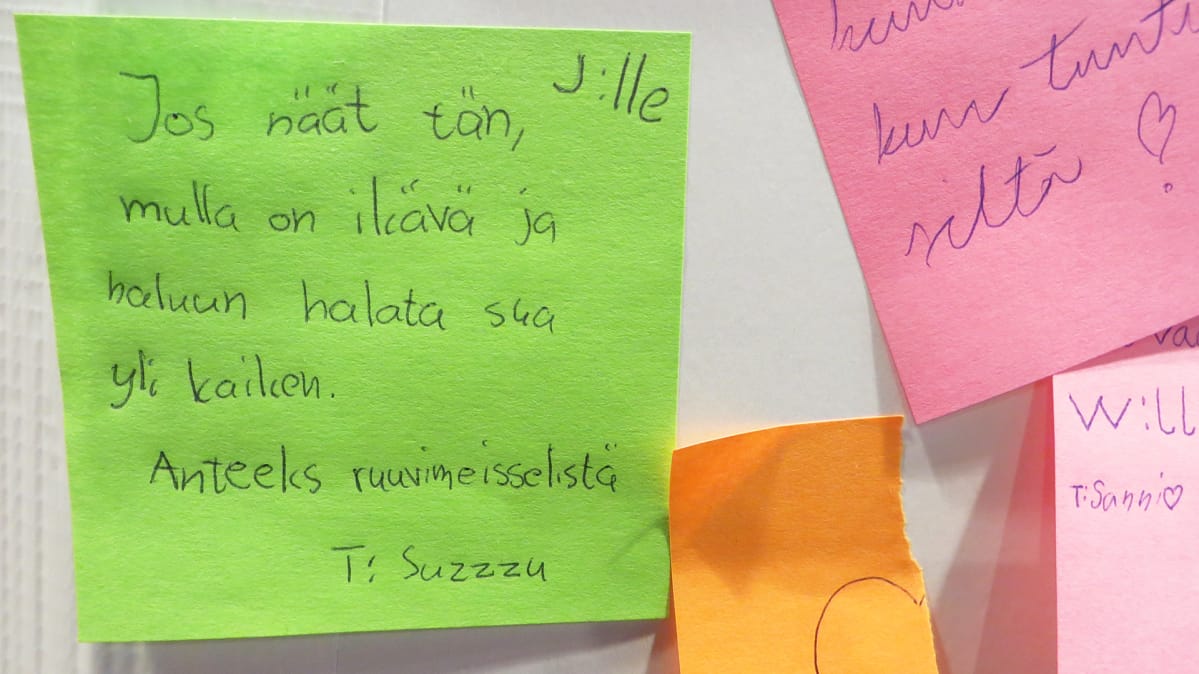 J:lle
Jos näät tän,
mulla on ikävä ja
haluun halata sua
yli kaiken.
Anteeks ruuvimeisselistä
T: Suzzzu
kun tuntu
siltä ♡
Will
T: Sanni♡